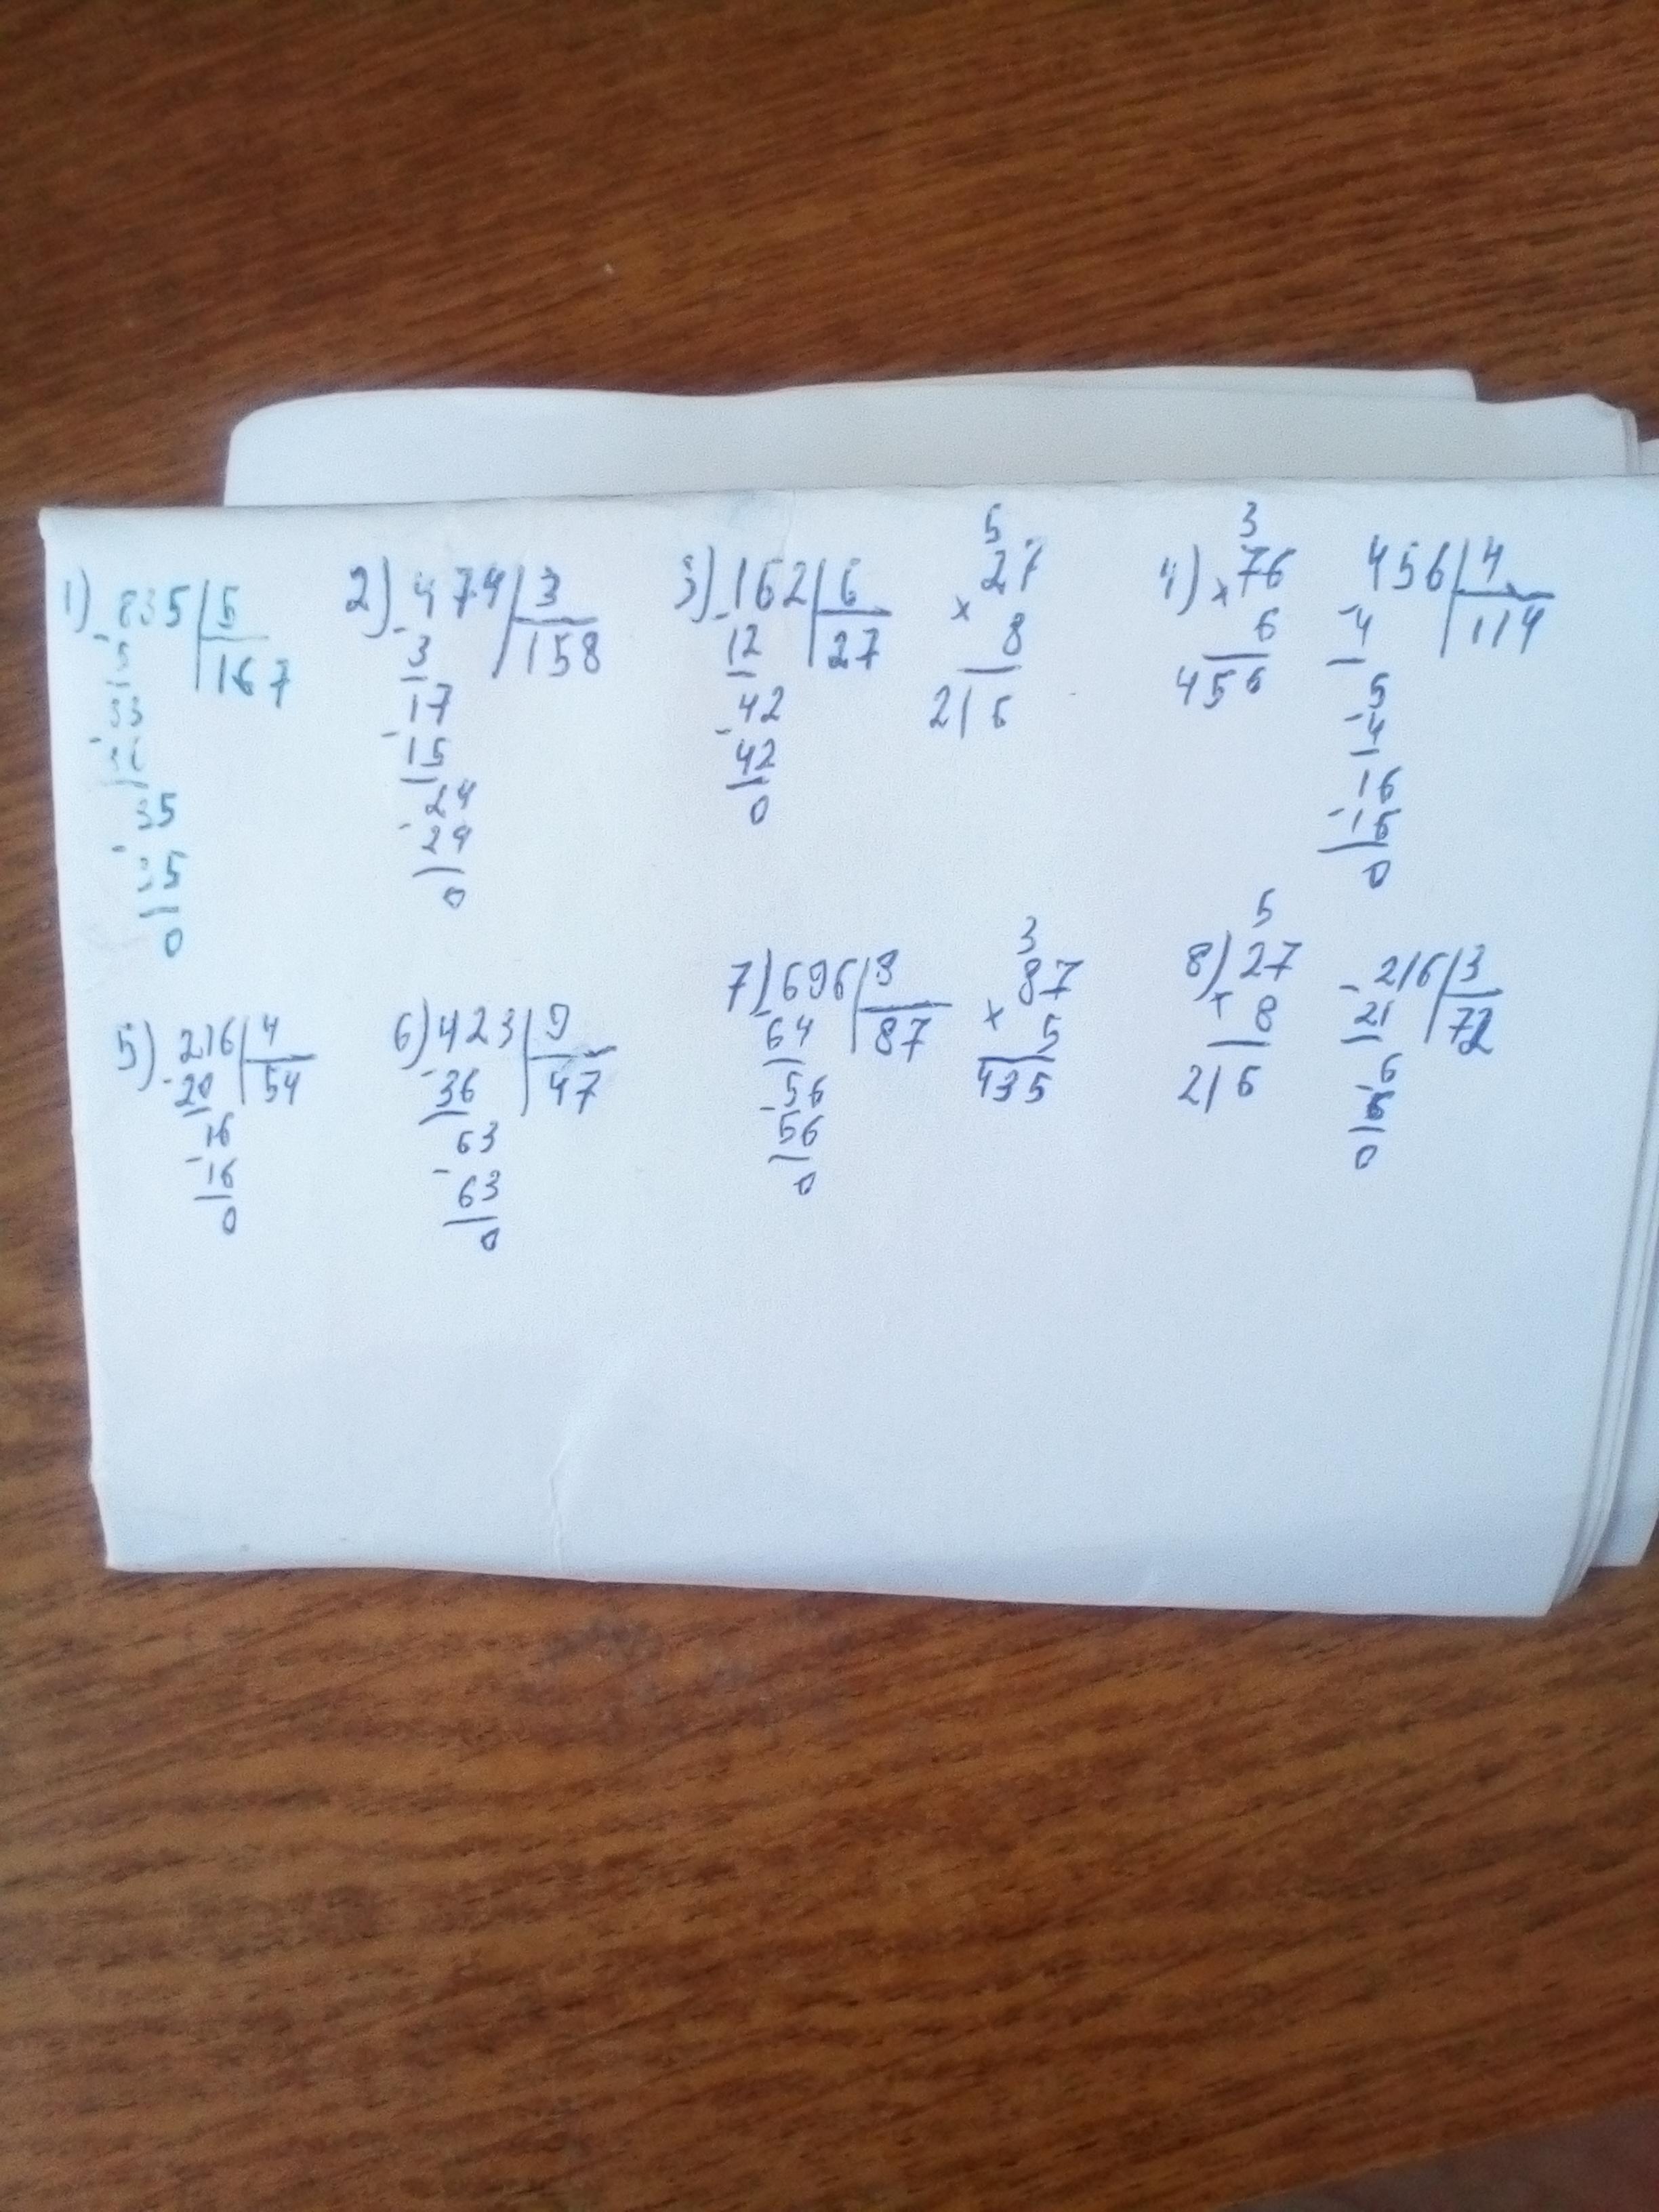 1) 835 | 5
- 5 | 167
33
-
35
- 35
0
2) 474 | 3
- 3 | 158
17
- 15
24
- 24
0
3) 162 | 6
- 12 | 27
42
- 42
0
5
27
× 8
216
3
4) 76
× 6
456
456 | 4
- 4 | 114
5
- 4
16
- 16
0
5) 216 | 4
- 20 | 54
16
- 16
0
6) 423 | 9
- 36 | 47
63
- 63
0
7) 696 | 8
- 64 | 87
56
- 56
0
3
87
× 5
435
5
8) 27
× 8
216
- 216 | 3
21 | 72
- 6
6
0